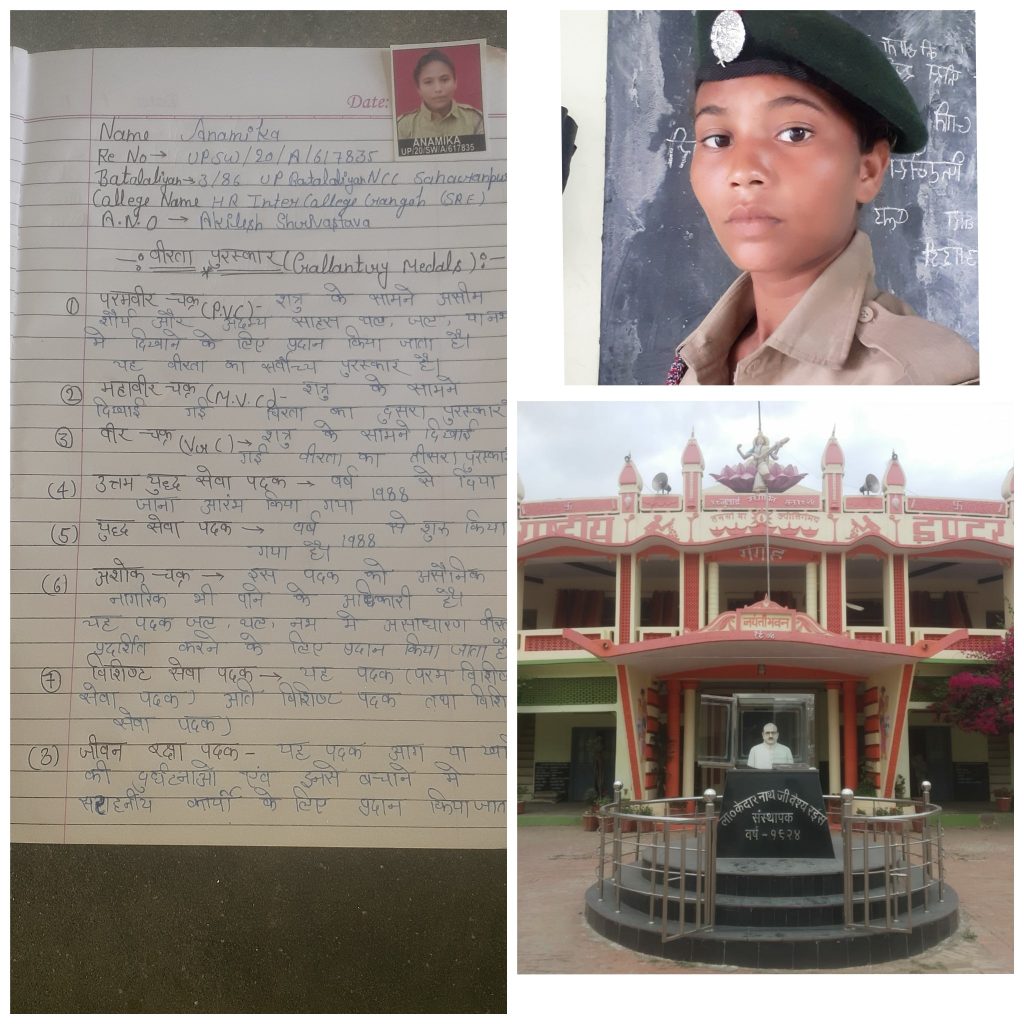 Date:
ANAMIKA
UP/20/SW/A/617835
Name Anamika
Re No → UPSW/20/A/617835
Batalaliyan → 3/86 UP Batalaliyan NCC Saharanpur
College Name HR Inter College Gangoh (SRE)
A.N.O → Akhilesh Shrivastava
वीरता पुरस्कार (Gallantry Medals):-
① परमवीर चक्र (P.V.C) - शत्रु के सामने असीम
शौर्य और अदम्य साहस थल, जल, या नभ
मे दिखाने के लिए प्रदान किया जाता है।
यह वीरता का सर्वोच्च पुरस्कार है।
② महावीर चक्र (M.V.C) - शत्रु के सामने
दिखाई गई विरता का दुसरा पुरस्कार
③ वीर चक्र (Vr C) → शत्रु के सामने दिखाई
गई वीरता का तीसरा पुरस्का
(4) उत्तम युद्ध सेवा पदक → वर्ष 1988 से दिया
जाना आरंभ किया गया
(5) युद्ध सेवा पदक → वर्ष 1988 से शुरु किया
गया है।
(6) अशोक चक्र → इस पदक को असैनिक
नागरिक भी पाने के अधिकारी है।
यह पदक जल, थल, नभ मे असाधारण वीर
प्रदर्शित करने के लिए प्रदान किया जाता है
⑦ विशिष्ट सेवा पदक → यह पदक (परम विशि
सेवा पदक) अति विशिष्ट पदक तथा विशि
सेवा पदक)
(3) जीवन रक्षा पदक - यह पदक आग या
की दुर्घटनाओं एवं इनसे बचाने मे
कार्यो के लिए प्रदान किया जाता
इण्टर
गंगोह
जयंती भवन
ला० केदार नाथ जी वैश्य रईस
संस्थापक
वर्ष - १९२४